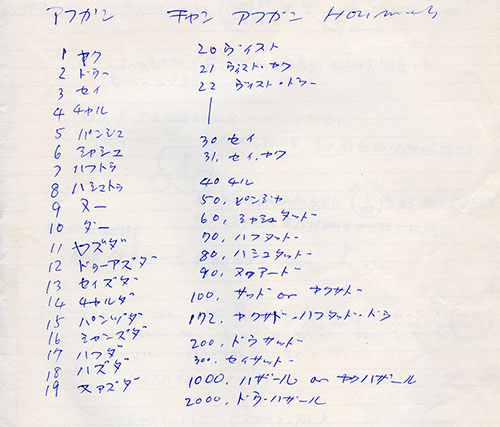 アフガン チャン アフガン How much
1 ヤク
2 ドゥー
3 セイ
4 チャル
5 パンシュ
6 シャシュ
7 ハフトゥ
8 ハシュトゥ
9 ヌー
10 ダー
11 ヤズダ
12 ドゥーアズダ
13 セイズダ
14 チャルダ
15 パンヅダ
16 シャンズダ
17 ハフダ
18 ハズダ
19 ヌアズダ
20 ヴィスト
21 ヴィスト・ヤク
22 ヴィスト・ドゥー
30 セイ
31. セイ・ヤク
40 チル
50. ピンジャ
60. シャシュタット
70. ハフタット
80. ハシュタット
90. ヌゥアード
100. サッド or ヤクサド
172. ヤクサド・ハフタッド・ドゥ
200. ドゥサット
300. セイサット
1000. ハザール or ヤクハザール
2000. ドゥ・ハザール